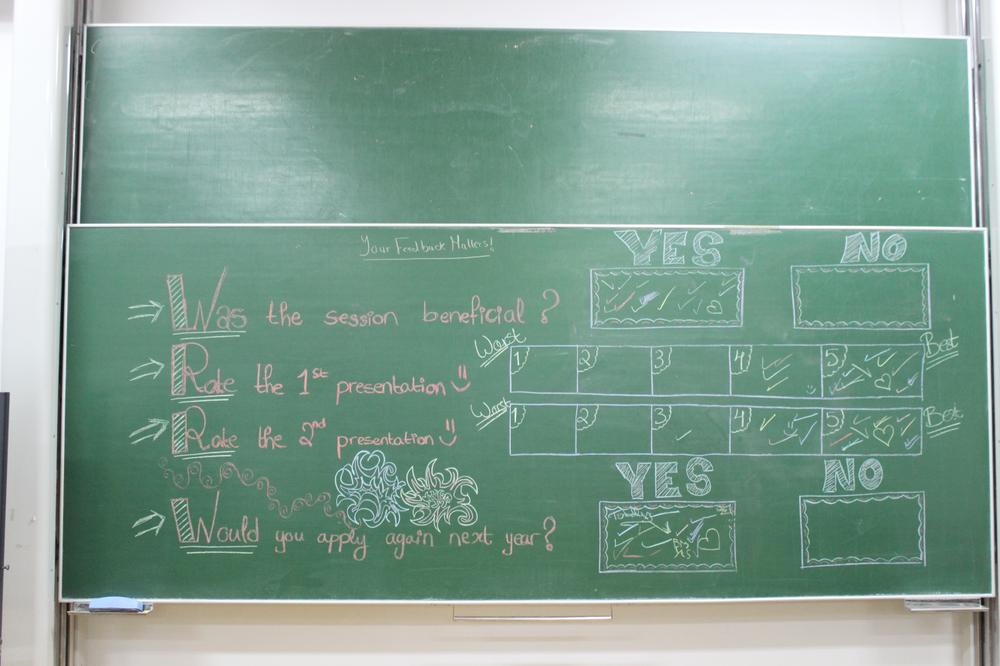 Your Feedback Matters!
YES NO
Was the session beneficial?
Worst 1 2 3 4 5 Best
Rate the 1st presentation
Worst 1 2 3 4 5 Best
Rate the 2nd presentation
YES NO
Would you apply again next year?